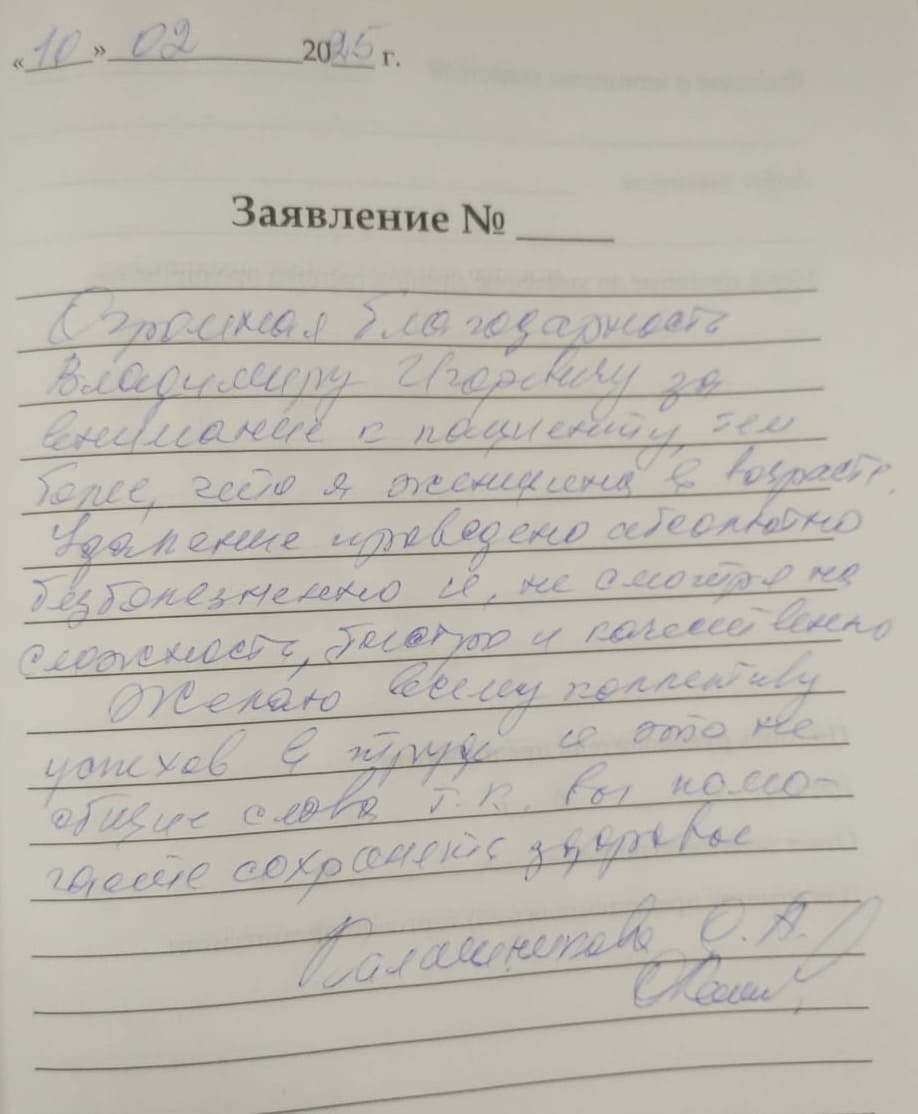 «10» 02 2025 г.
Заявление № ____
Огромная благодарность
Владимиру Игоревичу за
внимание к пациенту, тем
более, что я женщина в возрасте.
Удаление проведено абсолютно
безболезненно и, не смотря на
сложность, быстро и качественно
Желаю всему коллективу
успехов в труде и это не
общие слова т.к. вы помо-
гаете сохранить здоровье
Калашникова О.А.